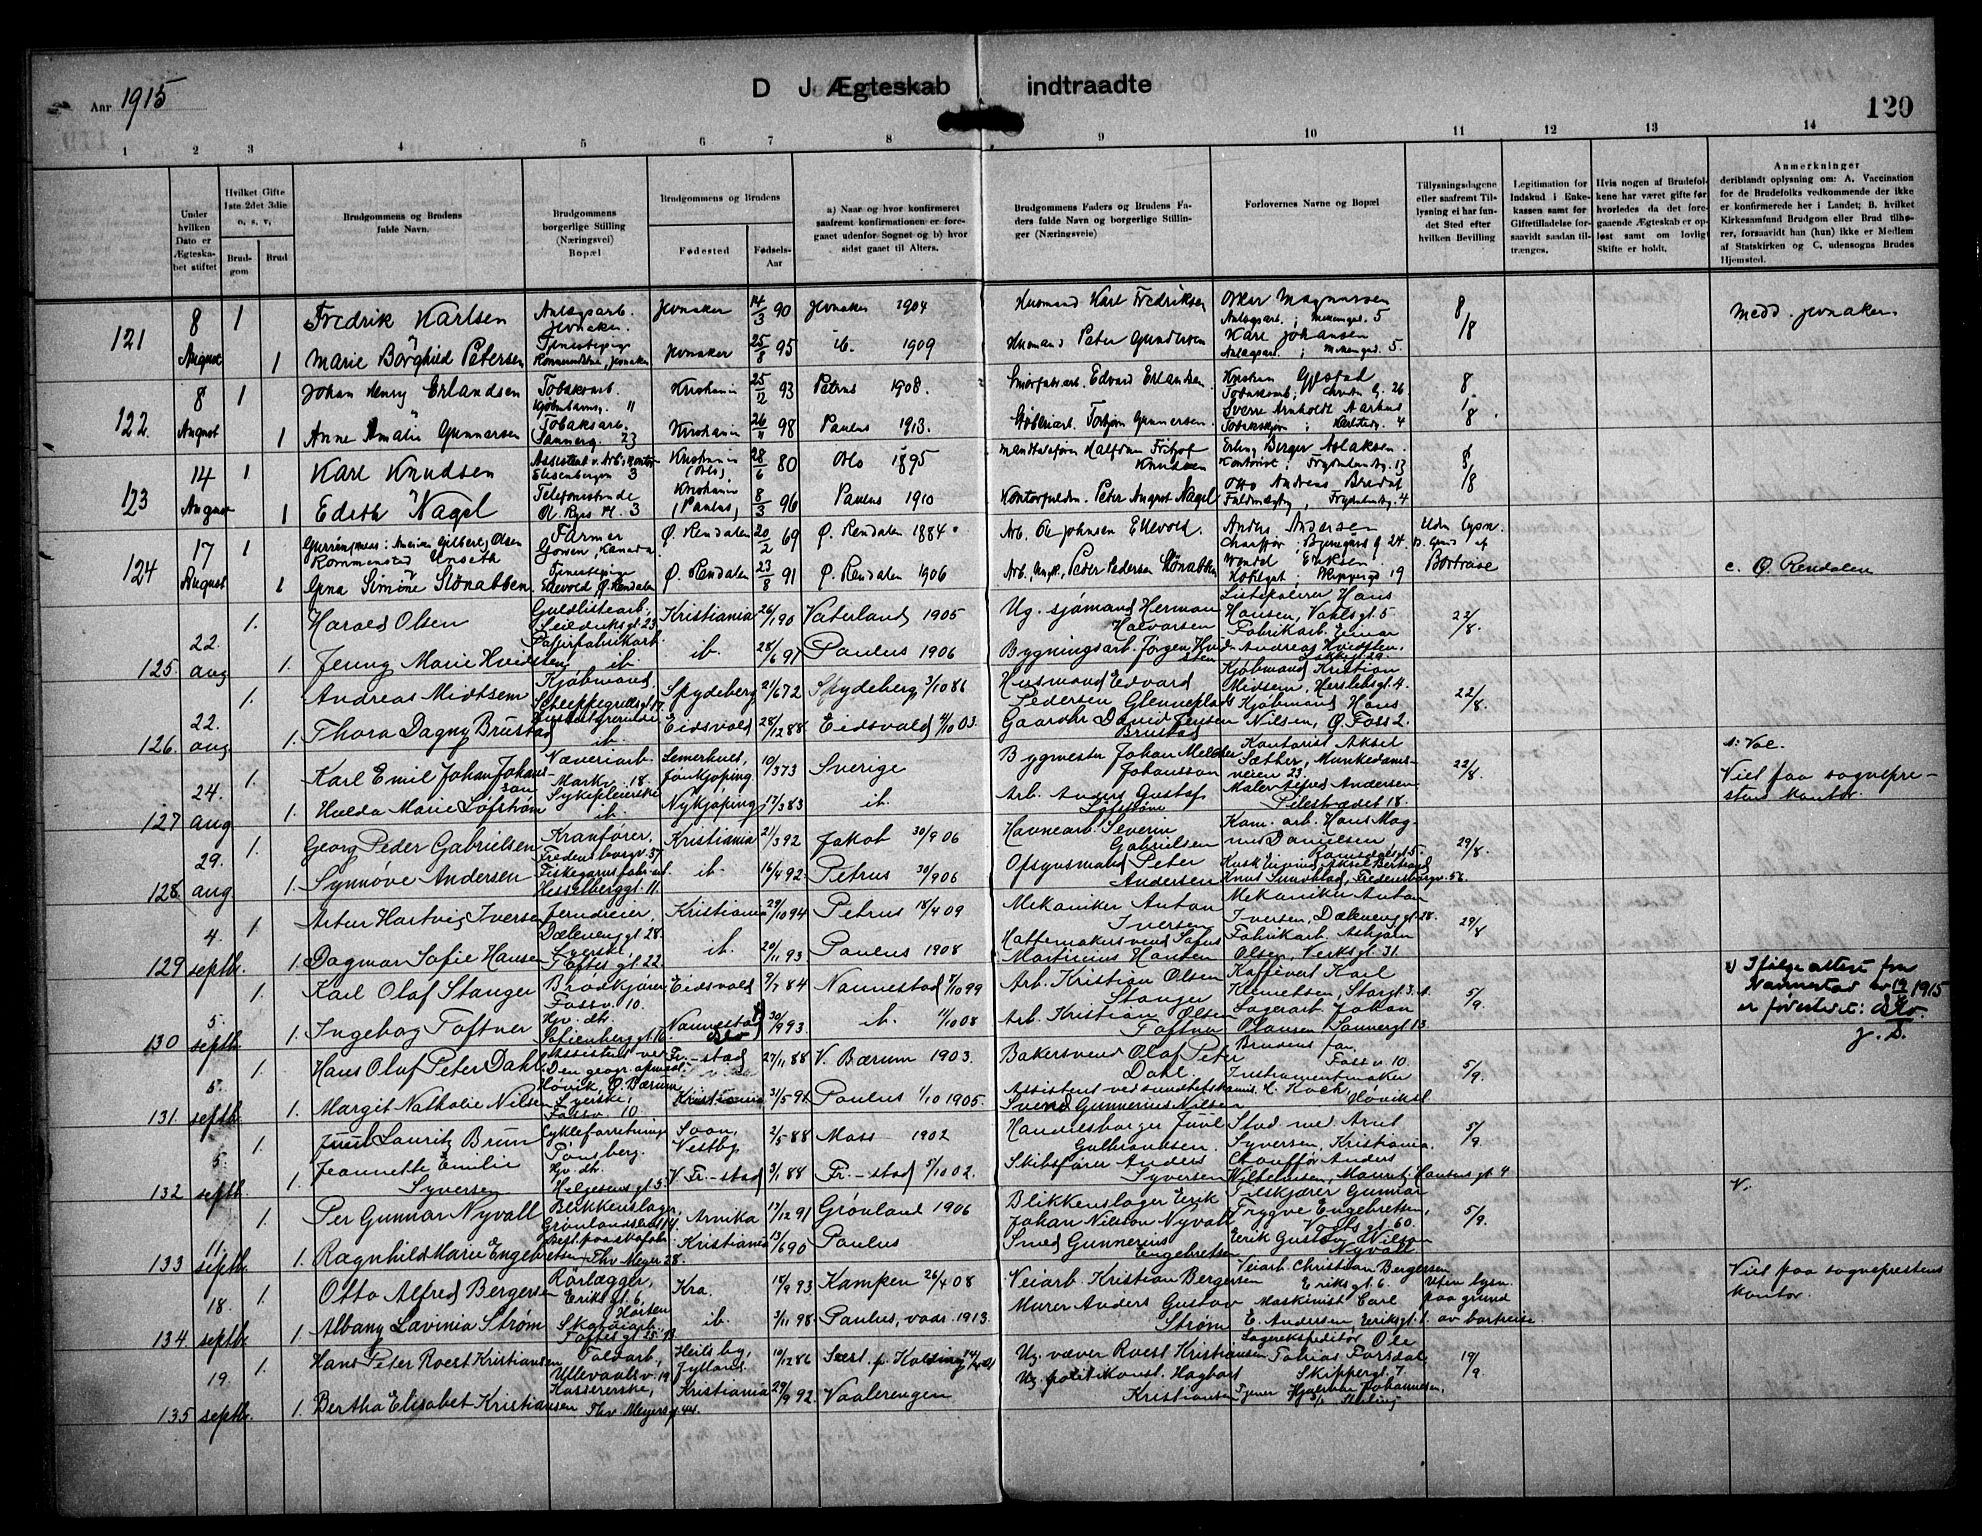 Aar 1915
D J Ægteskab indtraadte
120
1 2 3 4 5 6 7 8 9 10 11 12 13 14
Under hvilken Dato er Ægteskabet stiftet
Hvilket Gifte 1ste 2det 3die o. s. v,
Brudgom
Brud
Brudgommens og Brudens fulde Navn.
Brudgommens borgerlige Stilling (Næringsvei) Bopæl
Brudgommens og Brudens
Fødested
Fødsels-Aar
a) Naar og hvor konfirmeret saafremt konfirmationen er foregaaet udenfor Sognet og b) hvor sidst gaaet til Alters.
Brudgommens Faders og Brudens Faders fulde Navn og borgerlige Stillinger (Næringsveie)
Forlovernes Navne og Bopæl
Tillysningsdagene eller saafremt Tillysning ei har fundet Sted efter hvilken Bevilling
Legitimation for Indskud i Enkekassen samt for Giftetilladelse forsaavidt saadan tiltrænges.
Hvis nogen af Brudefolkene har været gifte før hvorledes da det foregaaende Ægteskab er opløst samt om lovlig Skifte er holdt.
Anmerkninger
deriblandt oplysning om: A. Vaccination for de Brudefolks vedkommende der ikke er konfirmerede her i Landet; B. hvilket Kirkesamfund Brudgom eller Brud tilhører, forsaavidt han (hun) ikke er Medlem af Statskirken og C, udensogns Brudes Hjemsted.
121 8 August 1 Fredrik Karlsen Anlægsarb. Jevnaker. Jevnaker 14/3 90 Jevnaker 1904 Husmand Karl Fredriksen Oskar Magnussen 8/8 Medd. Jevnaker
1 Marie Borghild Petersen Tjenestepige Jevnaker Jevnaker 25/8 95 ib. 1909 Husmand Peter Gundersen Karl Johansen
122. 8 August 1 Johan Henry Erlandsen Tobaksarb. 11 Kristiania 25/12 93 Petrus 1908. Edvard Erlandsen. Kristian Gjestad 26 8/8
1 Anne Amalie Gunnarsen Tobaksarb. Sannerg. 23 Kristiania 26/11 98 Paulus 1913. Torbjørn Gunnersen. Sverre Arnholdt Aarhus 4
123 14 August 1 Karl Knudsen Assistent v. Arb. kontor Eisenbergsv. 3 Kristiania (Oslo) 28/6 80 Oslo 1895 Halfdan Fritjof Knudsen Erling Berger Aslaksen Kontorist 13 8/8
1 Edith Nagel Telefonistinde Ol. Ryes Pl. 3 Kristiania (Paulus) 8/3 96 Paulus 1910 Peter August Nagel Otto Andreas Bredal 4
124 17 August 1 Kornmensted Unseth Farmer Gowen, Kanada Ø. Rendalen 20/2 69 Ø. Rendalen 1884 Arb. Ole Johnsen Ellevold. Anders Andersen Chauffør, Bjerregårds g 24. Uden Lysn. Grund af Bortreise
1 Gina Simone Stønabben Tjenestepige Ellevold, Ø. Rendalen Ø. Rendalen 23/8 91 Ø. Rendalen 1906 Arb. Peder Pedersen Stønabben Eriksen Skippergt 19 c. Ø. Rendalen
125 22. aug 1. Harald Olsen Guldlistearb. Seildriksgt. 23 Kristiania 26/1 90 Vaterland 1905 Ug. sjømand Herman Halvorsen Listpolerer Hans Hansen, Vahlsgt. 5 22/8.
1. Jenny Marie Hvidsten Papirfabrikarb. ib. ib. 28/6 91 Paulus 1906 Bygningsarb. Jørgen Hvidsten Fabrikarb. Einar Andreas Hvidsten,
126. 22. aug 1. Andreas Midtsem Kjøbmand, Scheppegrellsgt. 17. Spydeberg 21/6 72 Spydeberg 3/10 86 Husmand Edvard Pedersen Glenneplads Kjøbmand Kristian Midsem, Herslebsgt. 4. 22/8.
1. Thora Dagny Brustad ib. Eidsvold 28/12 88 Eidsvold 4/10 03. Gaardbr. David Jensen Brustad Kjøbmand Hans Nilsen, Ø. Foss 2.
127 24. aug 1. Karl Emil Johan Johansson Væveriarb. Markv. 18. Jønkjøping. 10/3 73 Sverige Bygmester Johan Melcher Johansson Kontorist Aksel Sæther, Munkedamsveien 23. 22/8. A: Vac. Viet paa sogneprestens kontor.
1. Hulda Marie Løfstrøm Sykepleierske ib. Nykjøping 17/3 83 ib. Arb. Anders Gustaf Løfstrøm Maler Alfred Andersen Pilestrædet 18.
128. 29. aug 1. Georg Peder Gabrielsen Kranfører, Fredensborgv. 57 Kristiania 21/3 92 Jakob 30/9 06 Havnearb. Severin Gabrielsen Kom. arb. Hans Magnus Danielsen Ramsdalsgt. 5. 29/8.
1. Synnøve Andersen Fiskegarnsfabr. arb. Hesselberggt. 11. ib. 16/4 92. Petrus 30/9 06 Opsynsmand Peter Andersen Knut Sundblad, Fredensborgv. 56.
129 4. septb. 1. Artur Hartvig Iversen Jerndreier, Dælenenggt. 28. Kristiania 29/10 94 Petrus 18/4 09 Mekaniker Anton Iversen Mekaniker Anton Iversen, Dælenenggt. 28. 29/8
1. Dagmar Sofie Hansen Syerske, Toftes gt. 22. ib. 20/11 93 Paulus 1908 Hattemakersvend Sofus Martinius Hansen Fabrikarb. Asbjørn Olsen, Verksgt. 31.
130 5. septb. 1. Karl Olaf Stanger Brødkjører Fossv. 10. Eidsvold 9/7 84 Nannestad 8/10 99 Arb. Kristian Olsen Stanger Kaffevert Karl Klemetsen, Storgt. 3. 5/9. Ifølge attest fra Nannestad av 1915 er fødestedet: Oslo. J. D.
1. Ingeborg Toftner Hjv. dt. Sofienberggt. 16 Nannestad Oslo 30/9 93 ib. 4/10 08 Arb. Kristian Olsen Toftner Lagerarb. Johan Olausen Sannergt. 13.
131. 5. septb. 1. Hans Olaf Peter Dahl Assistent ved Den geogr. opmaal. Høvik, Ø. Bærum Fr.-stad 27/11 88 V. Bærum 1903. Bakersvend Olaf Peter Dahl. Brudens far Fossv. 10. 5/9.
1. Margit Nathalie Nilsen Syerske, Fossv. 10. Kristiania 31/5 91 Paulus 1/10 1905. Assistent ved sundhetskomis. Svend Gunnerius Nilsen Instrumentmaker H. Koch, Høvik st.
132 5. septb. 1. Juul Lauritz Brun Cykleforretning, Tønsberg. Soon, Vestby 2/5 88 Moss 1902 Handelsborger Juul Gulbrandsen. Stud med Arnt Syversen, Kristiania. 5/9.
1. Jeannette Emilie Syversen Hjv. dt. Helgesensgt. 5 V. Fr.-stad 3/1 88 Fr.-stad 5/10 02. Skibsfører Anders Syversen Chauffør Anders Wilhelmsen, Mauritz Hansens gt. 4 V.
133 11. septb. 1. Per Gunnar Nyvall Blikkenslager, Arvika 17/12 91 Grønland 1906 Blikkenslager Erik Johan Nilsson Nyvall Tilskjærer Gunnar Trygve Engebretsen, Vogts gt. 60. 5/9.
1. Ragnhild Marie Engebretsen Thv. Meyer 28. Kristiania 13/6 90 Paulus Smed Gunnerius Engebretsen Erik Gustav Nilson Nyvall
134 18. septb. 1. Otto Alfred Bergersen Rørlægger, Eriks gt. 6. Kra. 18/9 93 Kampen 26/4 08 Veiarb. Kristian Bergersen Veiarb. Christian Bergersen Eriksgt. 6. Uten lysn. paa grund av bortreise Viet paa sogneprestens kontor.
1. Albany Lavinia Strøm Skotøiarb. Toftes gt. 25. Horten ib. 3/11 98. Paulus, vaar. 1913. Murer Anders Gustav Strøm Maskinist Carl E. Andersen, Eriksgt. 1.
135 19. septb. 1. Hans Peter Roest Kristiansen Toldarb., Ullevaalsv. 19 Heilsby, Jylland. 10/12 86 Sæst. p. Kolding Ug. væver Roest Kristiansen Lagerekspeditør Ole Tobias Forsdal Skippergt. 7. 19/9.
1. Bertha Elisabet Kristiansen Kassererske, Thv. Meyersgt. 44. Kristiania 29/9 92. Vaalerengen Ug. politikonst. Hagbart Kristiansen Tjener Hjalmar Johannesen,